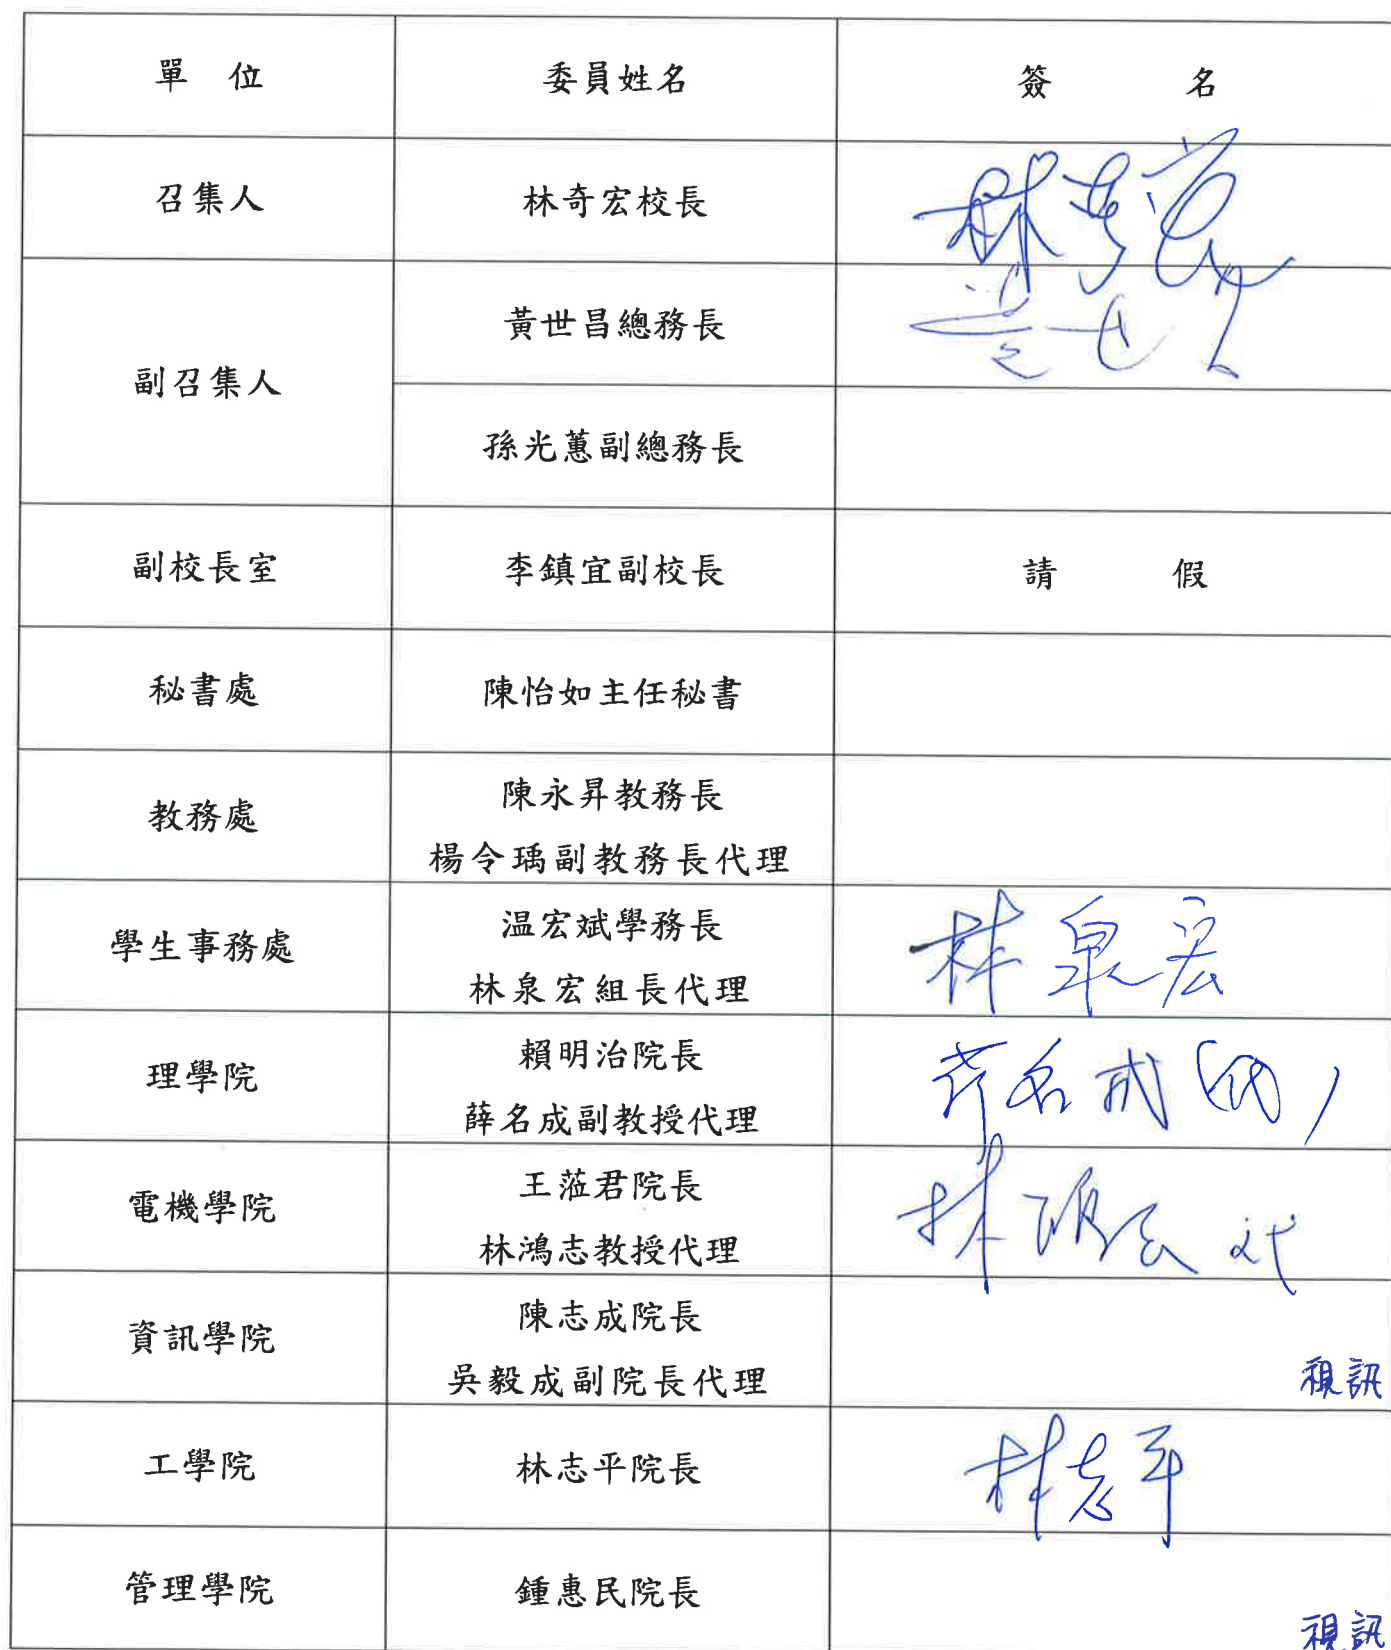 單 位 委員姓名 簽 名
召集人 林奇宏校長 林奇宏
副召集人 黃世昌總務長 黃世昌
孫光蕙副總務長
副校長室 李鎮宜副校長 請 假
秘書處 陳怡如主任秘書
教務處 陳永昇教務長
楊令瑀副教務長代理
學生事務處 温宏斌學務長
林泉宏組長代理 林泉宏
理學院 賴明治院長
薛名成副教授代理 薛名成(代)
電機學院 王蒞君院長
林鴻志教授代理 林鴻志 代
資訊學院 陳志成院長
吳毅成副院長代理 視訊
工學院 林志平院長 林志平
管理學院 鍾惠民院長 視訊